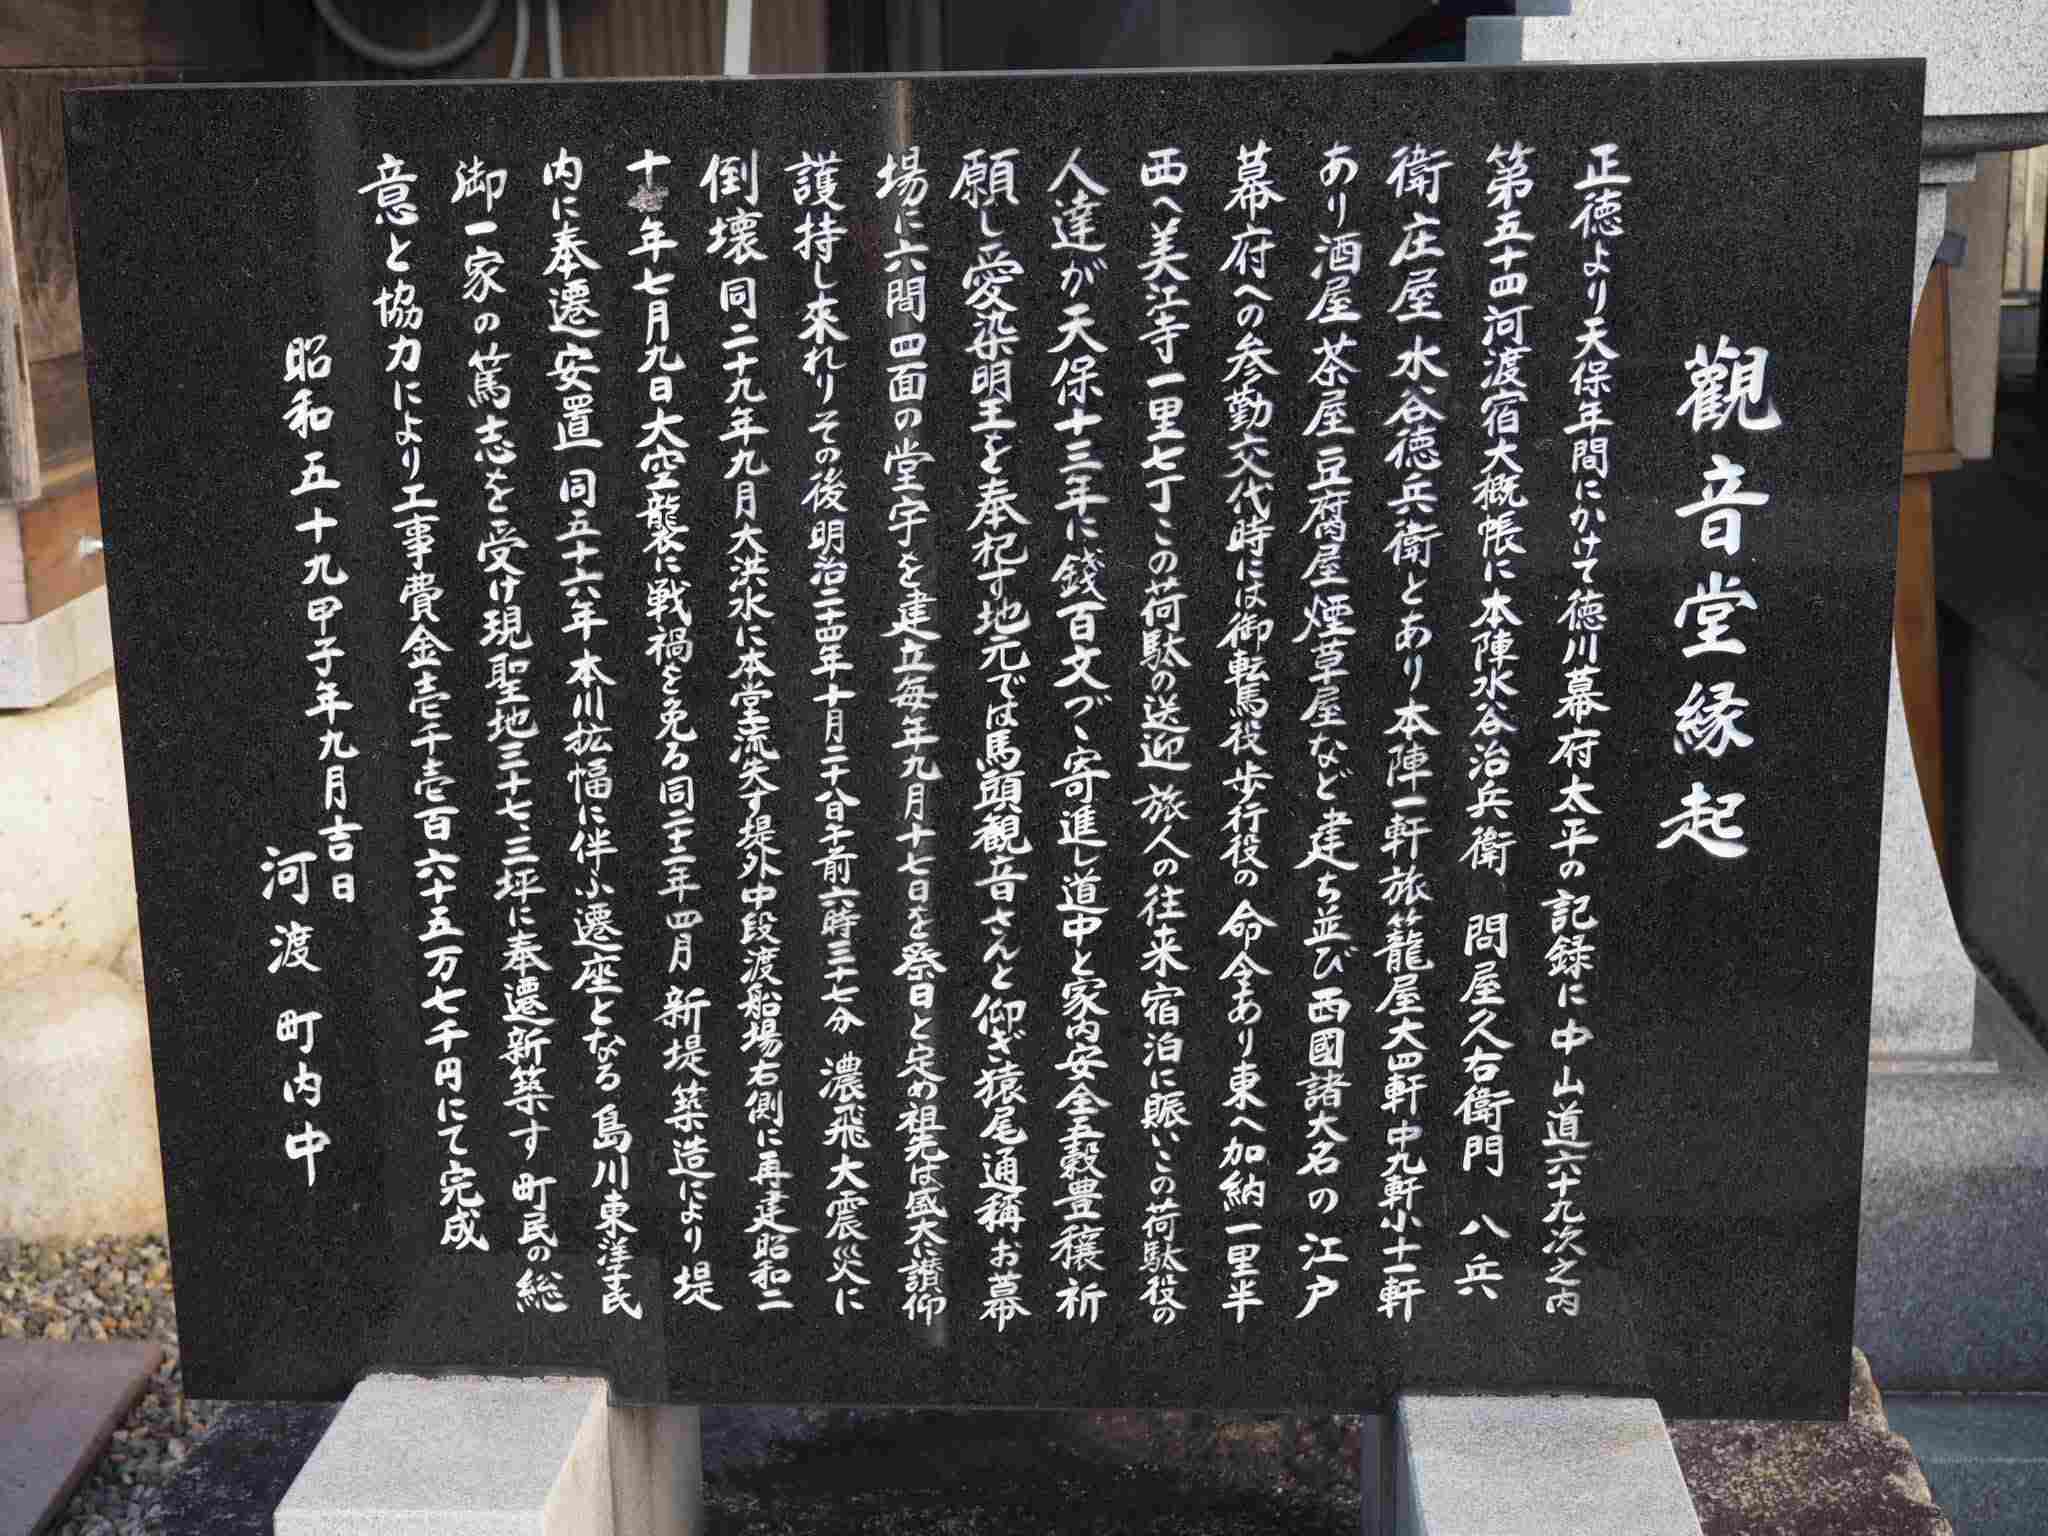 觀音堂縁起
正徳より天保年間にかけて徳川幕府太平の記録に中山道六十九次之内
第五十四河渡宿大概帳に本陣水谷治兵衛 問屋久右衛門 八兵
衛庄屋水谷徳兵衛とあり本陣一軒旅籠屋大四軒中九軒小十一軒
あり酒屋茶屋豆腐屋煙草屋など建ち並び西國諸大名の江戸
幕府への参勤交代時には御転馬役歩行役の命令あり東へ加納一里半
西へ美江寺一里七丁この荷駄の送迎旅人の往来宿泊に賑いこの荷駄役の
人達が天保十三年に銭百文づゝ寄進し道中と家内安全五穀豊穰祈
願し愛染明王を奉祀す地元では馬頭観音さんと仰ぎ猿尾通稱お幕
場に六間四面の堂宇を建立毎年九月十七日を祭日と定め祖先は盛大に讃仰
護持し來れりその後明治二十四年十月二十八日午前六時三十七分 濃飛大震災に
倒壊同二十九年九月大洪水に本堂流失す堤外中段渡船場右側に再建昭和二
十年七月九日大空襲に戦禍を免る同二十三年四月 新堤築造により堤
内に奉遷安置 同五十六年本川拡幅に伴ふ遷座となる島川東洋士氏
御一家の篤志を受け現聖地三十七、三坪に奉遷新築す町民の総
意と協力により工事費金壱千壱百六十五万七千円にて完成
昭和五十九甲子年九月吉日
河渡町内中